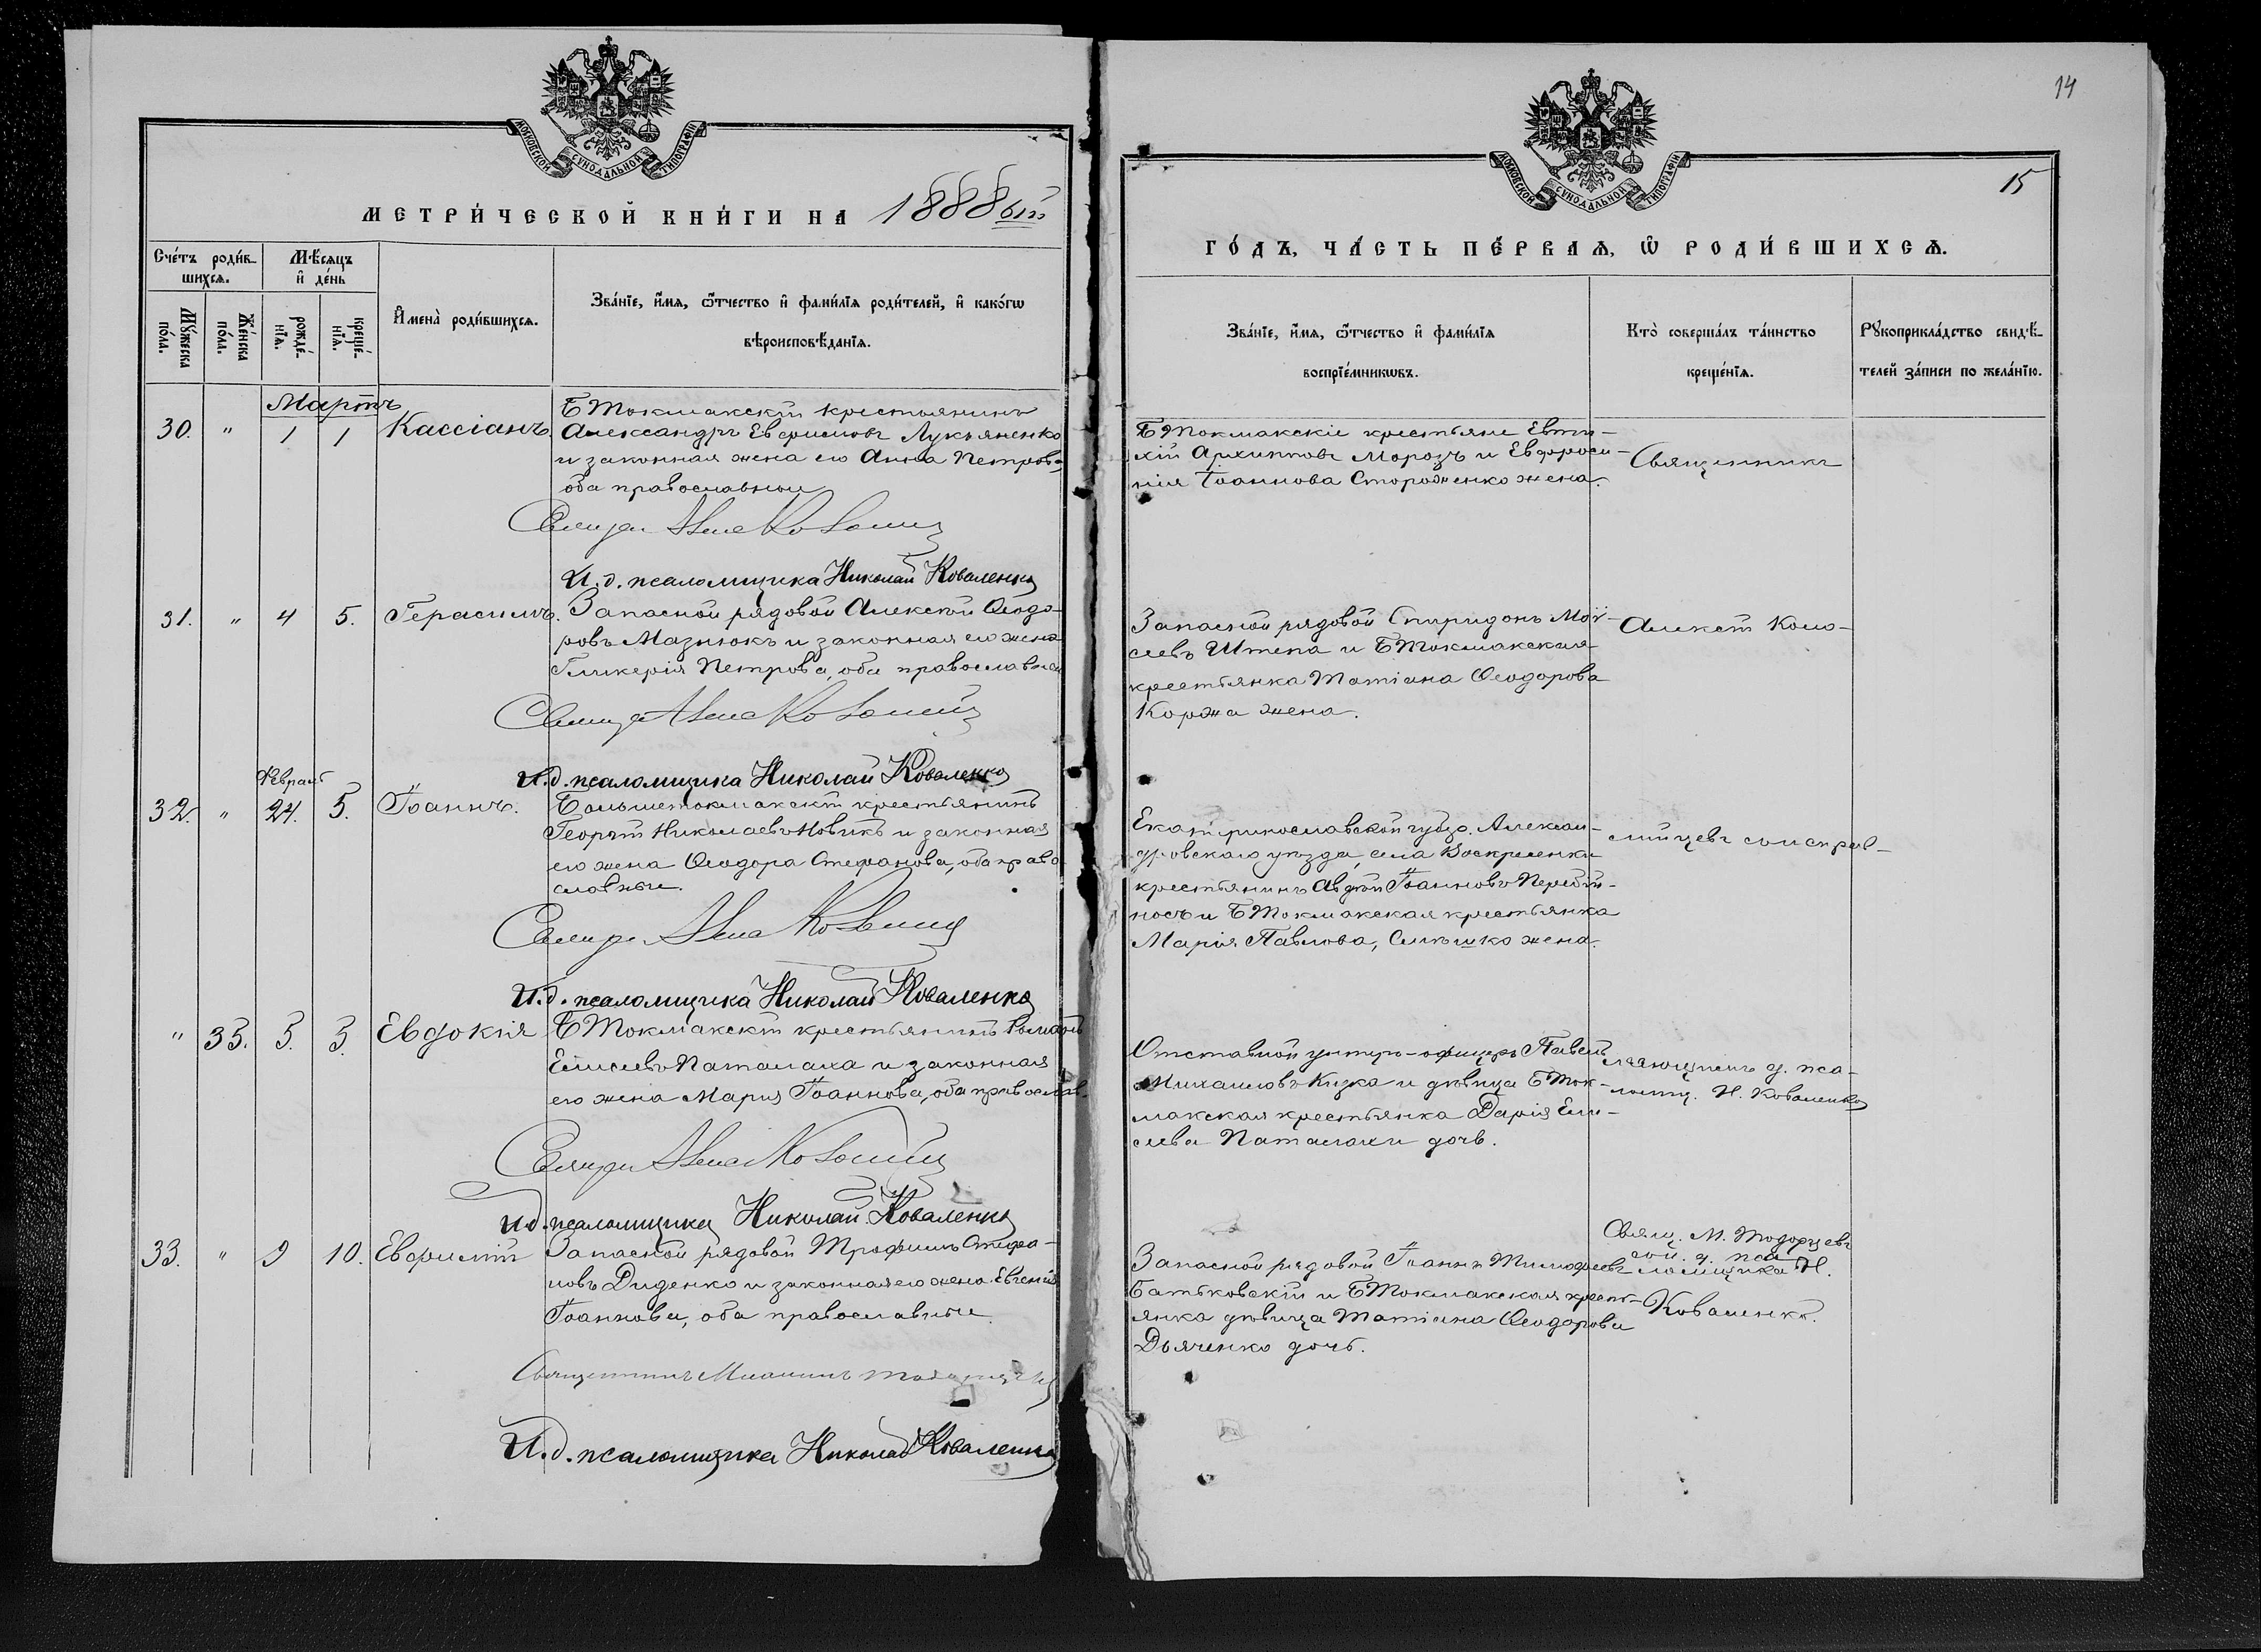 14
МОСКОВСКОЙ СѴНОДАЛЬНОЙ ТИПОГРАФІИ
МЕТРИ́ЧЕСКОЙ КНИ́ГИ НА 1888ый
Сче́тъ роди́вшихсѧ.
Мѣ́сѧцъ и҆ де́нь
И҆мена̀ роди́вшихсѧ.
Зва́нїе, и҆́мѧ, ѻ҆́тчество и҆ фами́лїѧ роди́телей, и҆ како́гѡ
вѣроисповѣ́данїѧ.
Мꙋ́жеска по́ла.
Же́нска по́ла.
рожде́нїѧ.
креще́нїѧ.
Мартъ
30. " 1 1 Кассіанъ.
БТокмакскій крестьянинъ
Александръ Евфимовъ Лукьяненко
и законная жена его Анна Петрова,
оба православные
И.д. псаломщика Николай Коваленко
31. " 4 5. Герасимъ.
Запасной рядовой Алексѣй Ѳеодо-
ровъ Мазнюкъ и законная его жена
Гликерія Петрова, оба православные
И.д. псаломщика Николай Коваленко
Февраль
32. " 24. 5. Іоаннъ.
Большетокмакскій крестьянинъ
Георгій Николаевъ Новикъ и законная
его жена Ѳеодора Стефанова, оба право-
славные.
И.д. псаломщика Николай Коваленко
" 35. 3. 3. Евдокія
БТокмакскій крестьянинъ Романъ
Елисеевъ Паталаха и законная
его жена Марія Іоаннова, оба православ.
И.д. псаломщика Николай Коваленко
33. " 9 10. Евфимій
Запасной рядовой Трофимъ Стефа-
новъ Диденко и законная его жена Евгенія
Іоаннова, оба православные.
Священникъ
И.д. псаломщика Николай Коваленко
МОСКОВСКОЙ СѴНОДАЛЬНОЙ ТИПОГРАФІИ
15
ГО́ДЪ, ЧА́СТЬ ПЕ́РВАѦ, Ѡ҆ РОДИ́ВШИХСѦ.
Зва́нїе, и҆́мѧ, ѻ҆́тчество и҆ фами́лїѧ
воспрїе́мникѡвъ.
Кто̀ соверша́лъ та́инство
креще́нїѧ.
Рꙋкоприкла́дство свидѣ́-
телей за́писи по жела́нїю.
БТокмакскіе крестьяне Евти-
хій Архиповъ Морозъ и Евфроси-
нія Іоаннова Стороженко жена.
Священникъ
Запасной рядовой Спиридонъ Мои-
сеевъ Штепа и БТокмакская
крестьянка Татіана Ѳеодорова
Коржа жена.
Алексѣй Коло-
Екатеринославской губер. Алексан-
дровскаго уѣзда, села Воскресенки
крестьянинъ Авдѣй Іоанновъ Перебій-
носъ и БТокмакская крестьянка
Марія Павлова, жена.
мійцевъ съ исправ-
Отставной унтеръ-офицеръ Павелъ
Михаиловъ Кизка и дѣвица БТок-
макская крестьянка Дарія Ели-
сеева Паталахи дочь.
ляющимъ д. пса-
ломщ. Н. Коваленко
Запасной рядовой Іоаннъ Тимофеевъ
Батьковскій и БТокмакская кресть-
янка дѣвица Татіана Ѳеодорова
Дьяченко дочь.
Свящ. М. Тодорцевъ
д. пса-
ломщика Н.
Коваленко.